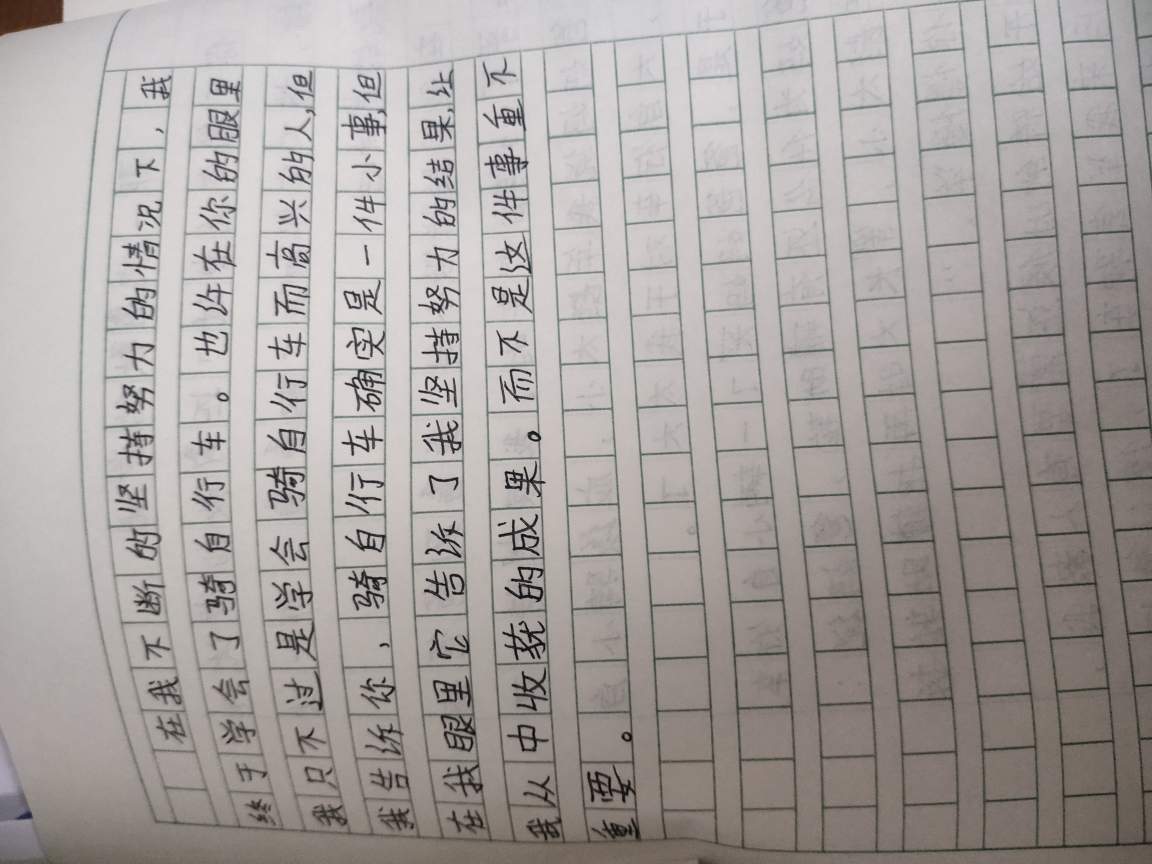 在我不断的坚持努力的情况下，我
终于学会了骑自行车。也许在你的服里
我只不过是学会骑自行车而高兴的人,但
我告诉你，骑自行车确实是一件小事,但
在我眼里它告诉了我坚持努力的结果,让
我从中收获的成果。而不是这件事重不
重要。